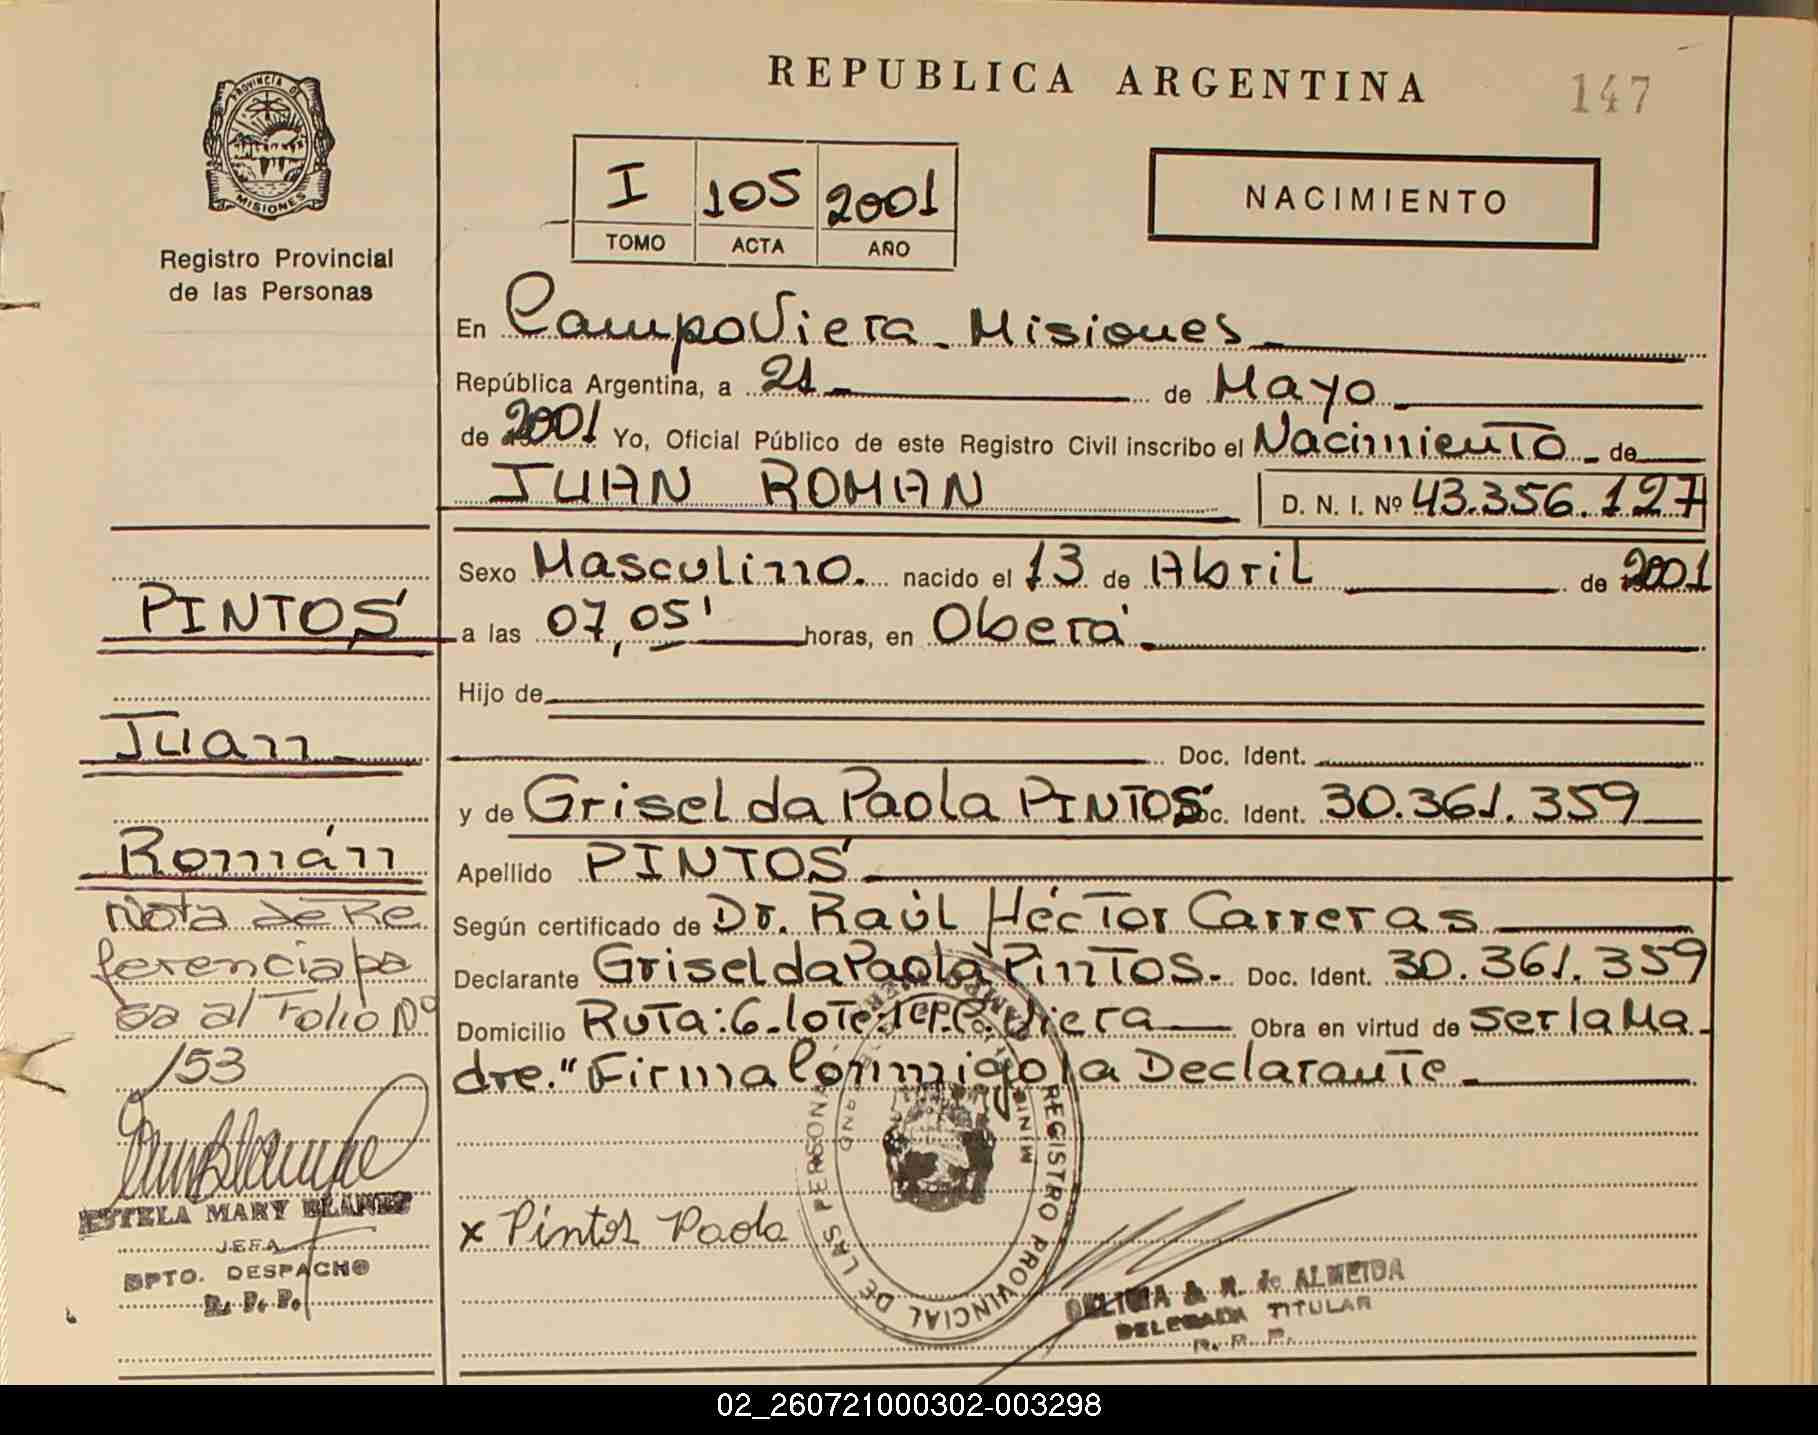 REPUBLICA ARGENTINA
147
PROVINCIA DE
MISIONES
Registro Provincial
de las Personas
I 105 2001
TOMO ACTA AÑO
NACIMIENTO
En Campo Viera - Misiones
República Argentina, a 21 de Mayo
de 2001 Yo, Oficial Público de este Registro Civil inscribo el Nacimiento de
JUAN ROMAN D. N. I. Nº 43.356.127
Sexo Masculino. nacido el 13 de Abril de 2001
a las 07,05' horas, en Oberá
Hijo de
Doc. Ident.
y de Griselda Paola PINTOS Doc. Ident. 30.361.359
Apellido PINTOS
Según certificado de Dr. Raúl Héctor Carreras
Declarante Griselda Paola Pintos. Doc. Ident. 30.361.359
Domicilio Ruta: 6 - lote: Viera Obra en virtud de ser la Ma
dre." Firma Conmigo la Declarante
PINTOS
Juan
Román
Nota de Re
ferencia pa
sa al Folio Nº
153
ESTELA MARY BLANES
JEFA
DPTO. DESPACHO
R. P. P.
x Pintos Paola
REGISTRO PROVINCIAL DE LAS PERSONAS
A. R. de ALMEIDA
DELEGADA TITULAR
R. P. P.
02_260721000302-003298